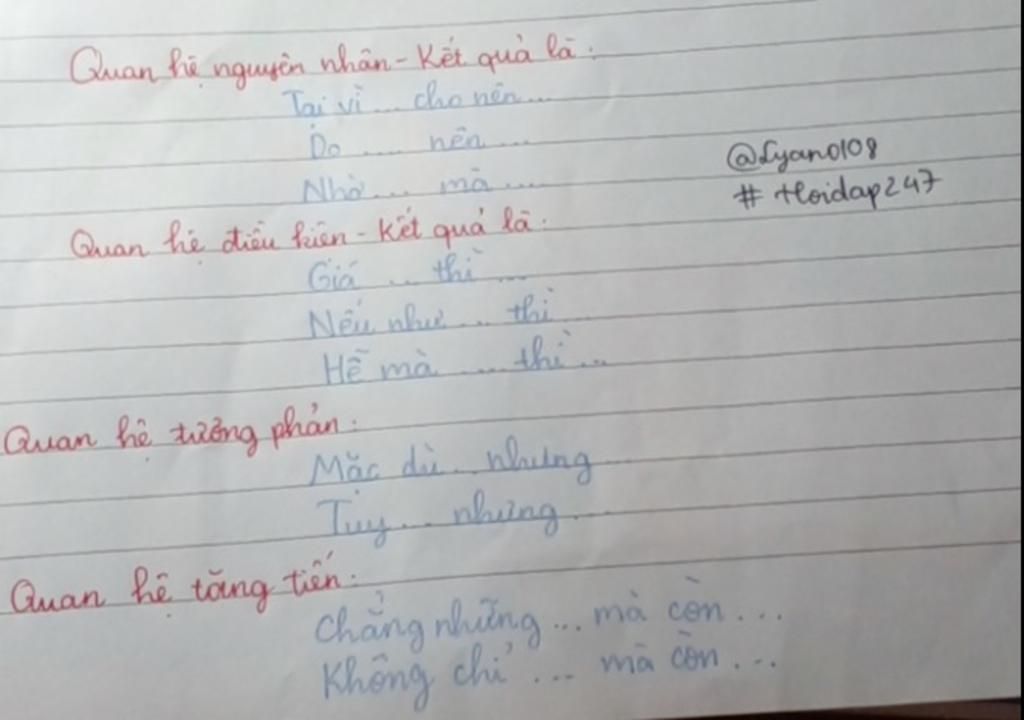 Quan hệ nguyên nhân - Kết quả là:
Tại vì ... cho nên ...
Do ... nên ...
Nhờ ... mà ...
@Lyan0108
# Hoidap247
Quan hệ điều kiện - Kết quả là:
Giá ... thì ...
Nếu như ... thì
Hễ mà ... thì ...
Quan hệ tương phản:
Mặc dù ... nhưng
Tuy ... nhưng ...
Quan hệ tăng tiến:
Chẳng những ... mà còn ...
Không chỉ ... mà còn ...